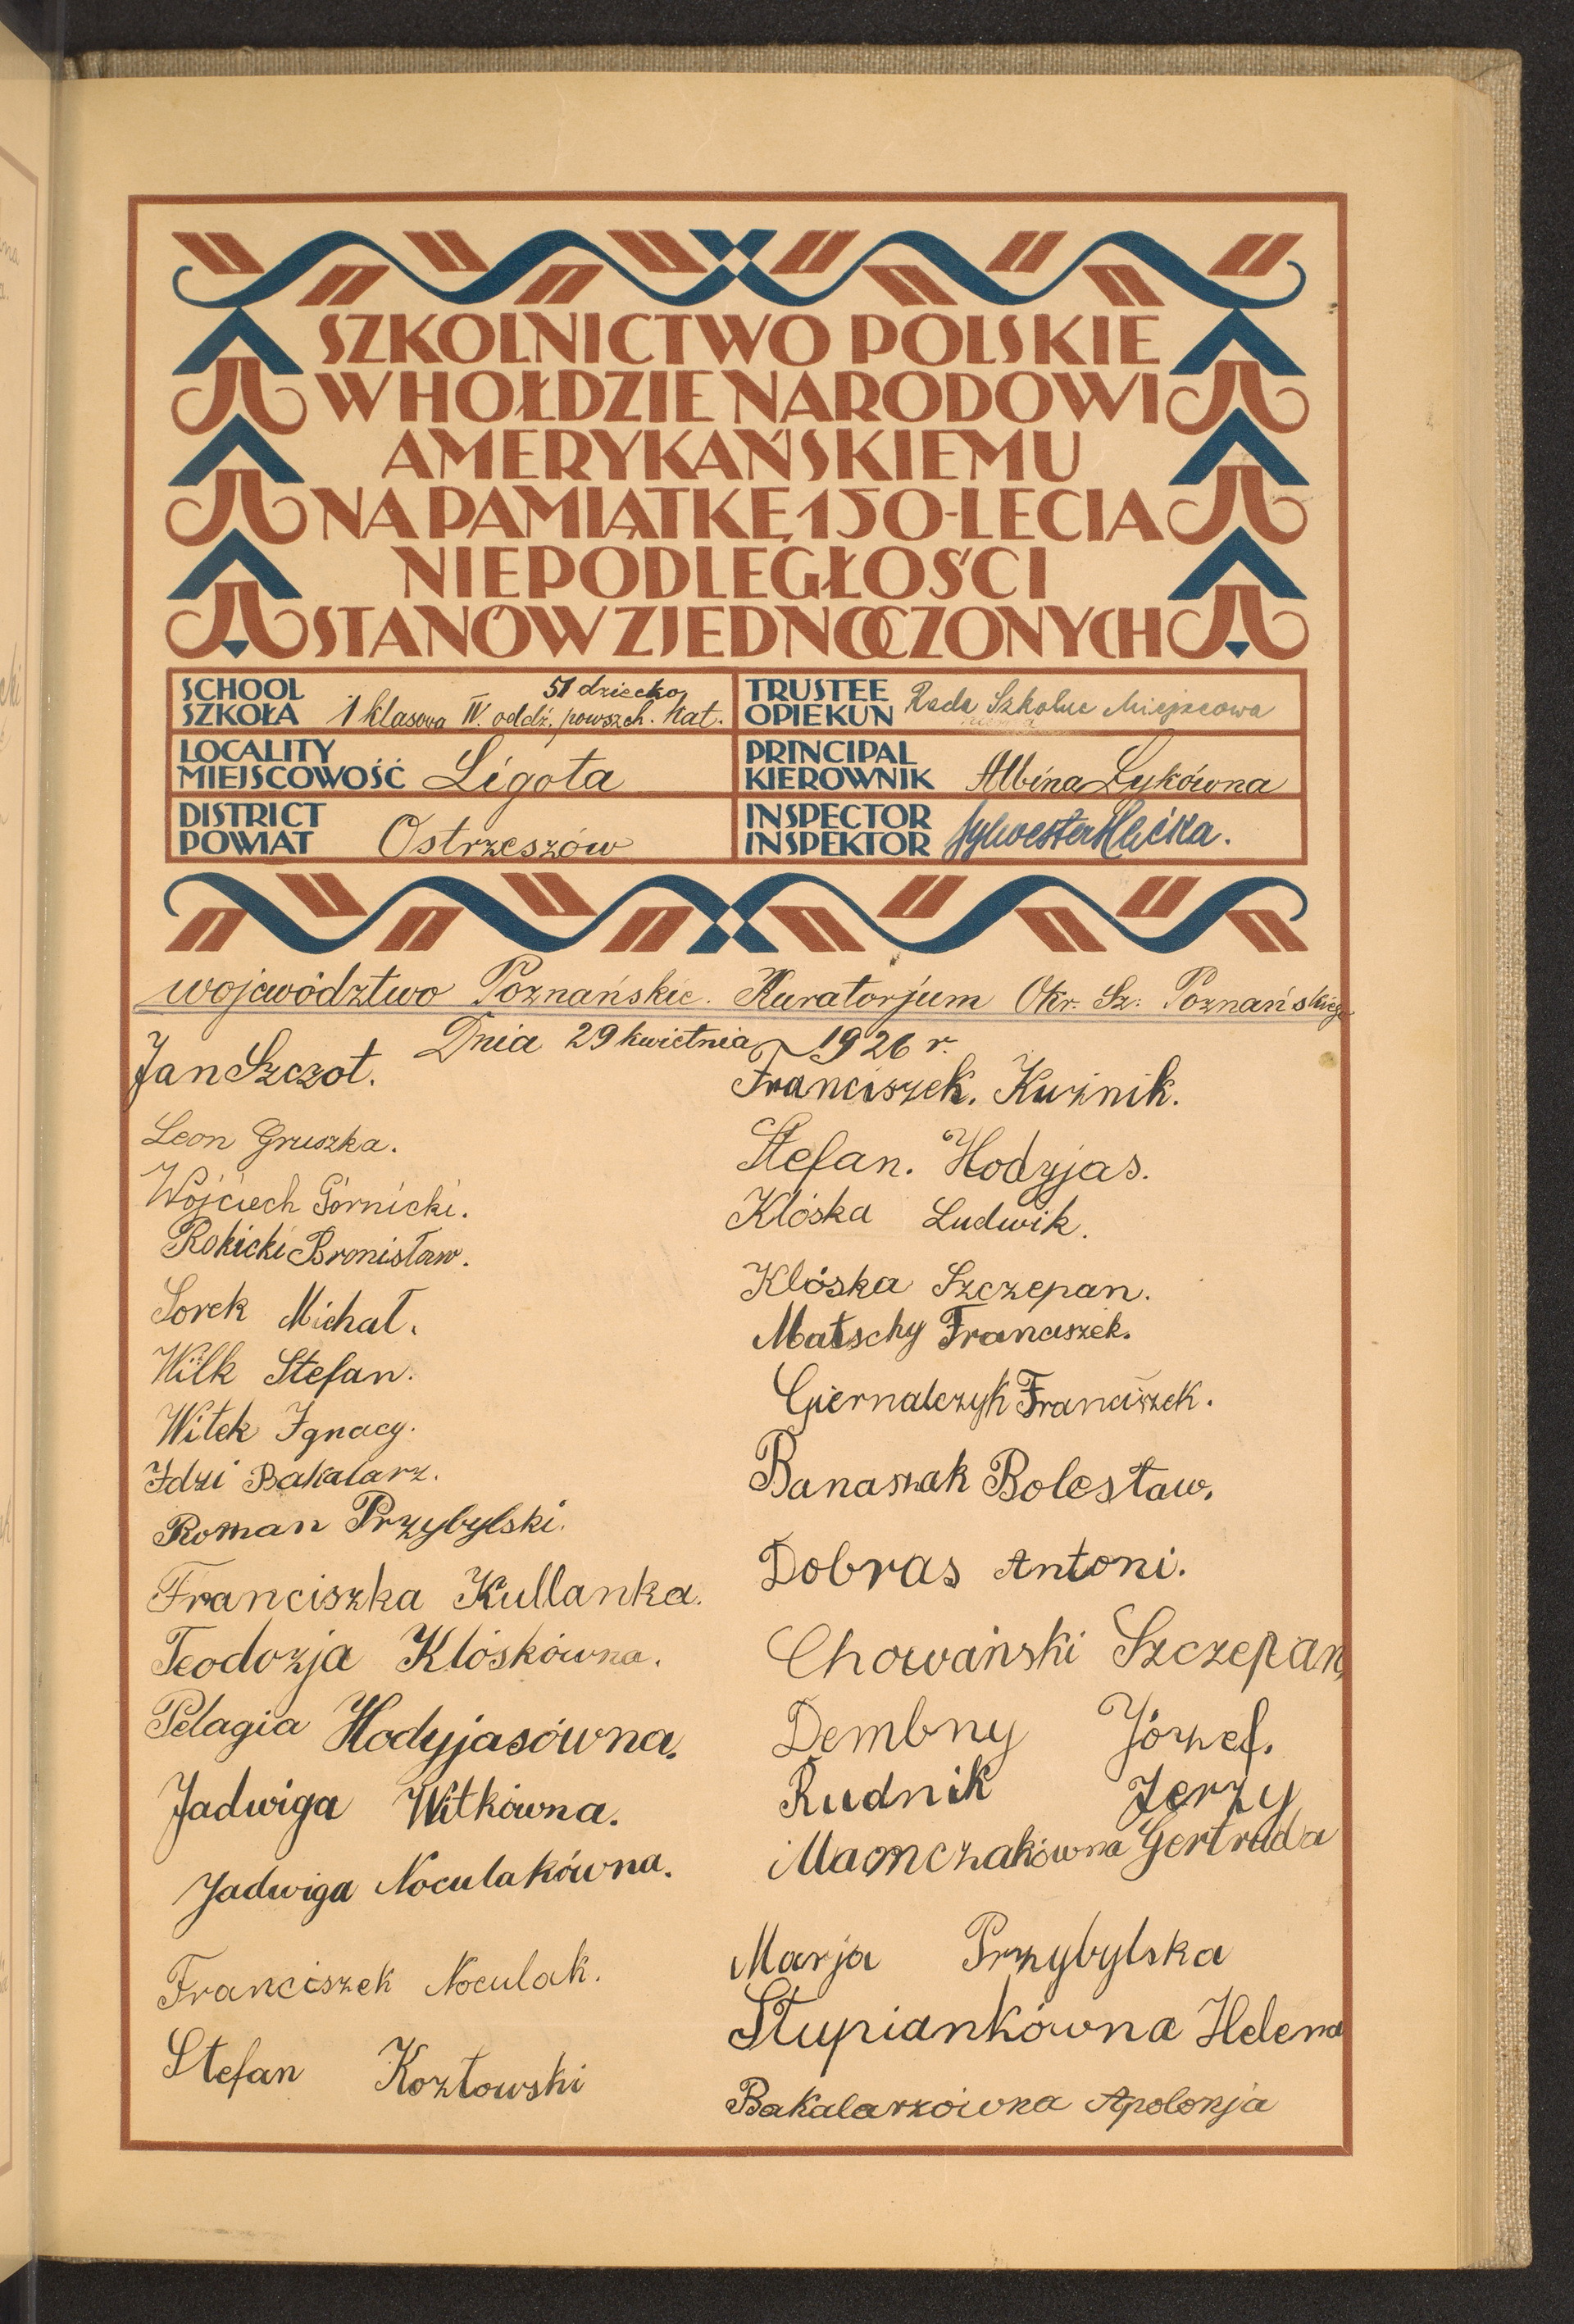 SZKOLNICTWO POLSKIE
W HOŁDZIE NARODOWI
AMERYKAŃSKIEMU
NA PAMIĄTKĘ 150-LECIA
NIEPODLEGŁOŚCI
STANÓW ZJEDNOCZONYCH
SCHOOL
SZKOŁA
51 dziecko
1 klasowa IV. oddź. powszch. kat.
TRUSTEE
OPIEKUN
Rada Szkolna Miejscowa
LOCALITY
MIEJSCOWOŚĆ
Ligota
PRINCIPAL
KIEROWNIK
Albina Łykówna
DISTRICT
POWIAT
Ostrzeszów
INSPECTOR
INSPEKTOR
Sylwester
województwo Poznańskie. Kuratorjum Okr. Sz. Poznańskiego
Dnia 29 kwietnia 1926 r.
Jan Szczot.
Leon Gruszka.
Wojciech Górnicki.
Rokicki Bronisław.
Sorek Michał.
Wilk Stefan.
Witek Ignacy.
Idzi Bakalarz.
Roman Przybylski.
Franciszka Kullanka.
Teodozja Klóskówna.
Pelagia Hodyjasówna.
Jadwiga Witkówna.
Jadwiga Noculakówna.
Franciszek Noculak.
Stefan Kozłowski
Franciszek. Kuźnik.
Stefan. Hodyjas.
Klóska Ludwik.
Klóska Szczepan.
Matschy Franciszek.
Giernalczyk Franciszek.
Banaszak Bolesław.
Dobras Antoni.
Chowański Szczepan,
Dembny Józef.
Rudnik Jerzy
Mamczakówna Gertruda
Marja Przybylska
Słupiankówna Helena
Bakalarzówna Apolonja